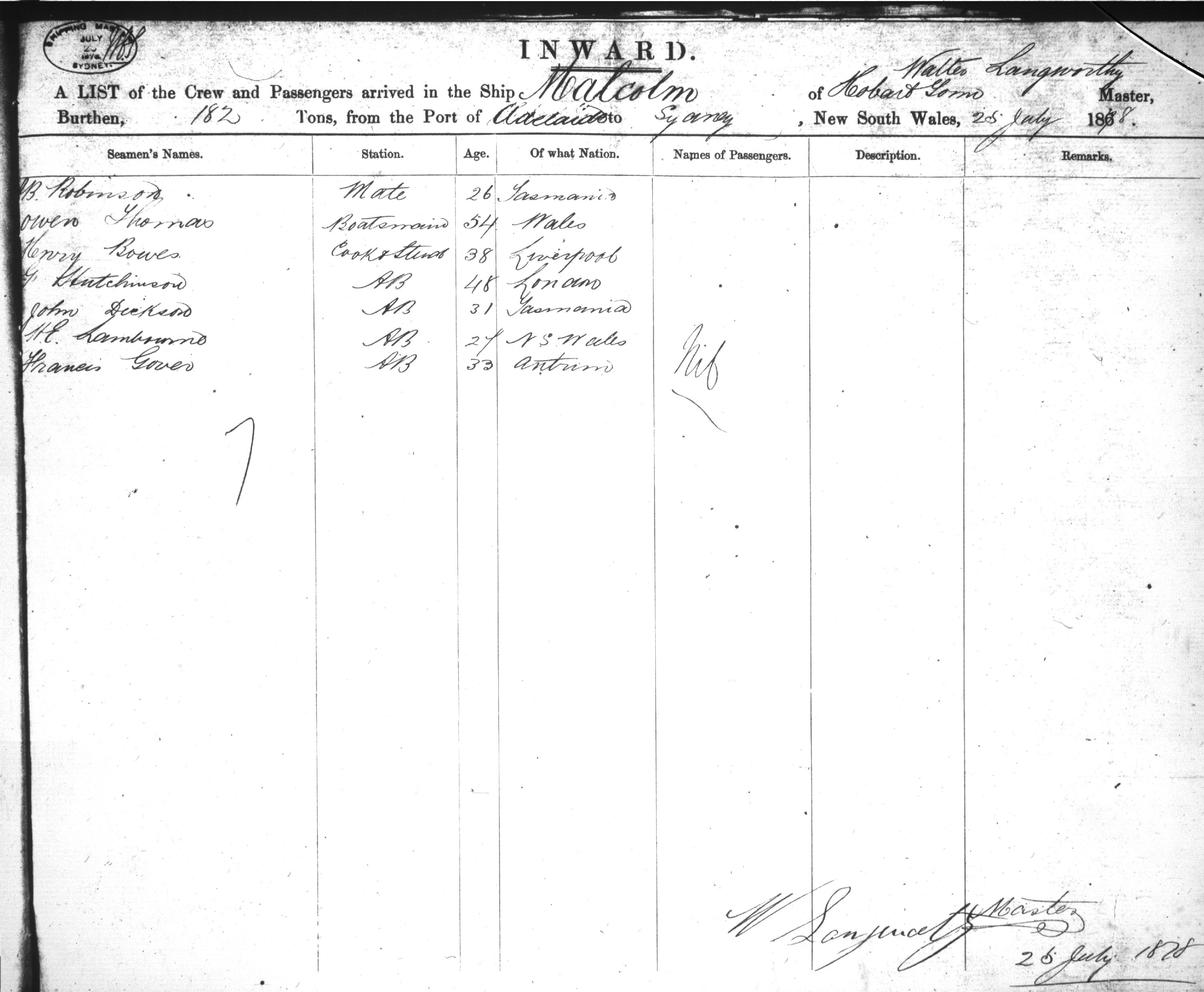 SHIPPING MASTER
JULY
25
1878
SYDNEY
INWARD.
Walter Langworthy
A LIST of the Crew and Passengers arrived in the Ship Malcolm of Hobart Town Master,
Burthen, 182 Tons, from the Port of Adelaide to Sydney, New South Wales, 25 July 1878.
Seamen's Names. Station. Age. Of what Nation. Names of Passengers. Description. Remarks.
B. Robinson Mate 26 Tasmania
Owen Thomas Boatswain 54 Wales
Henry Bowes Cook & Stewd 38 Liverpool
Hutchinson AB 48 London
John Dickson AB 31 Tasmania
H E. Lambourne AB 27 N S Wales
Francis Gover AB 33 Antrim
Nil
7
W Langworthy Master
25 July 1878